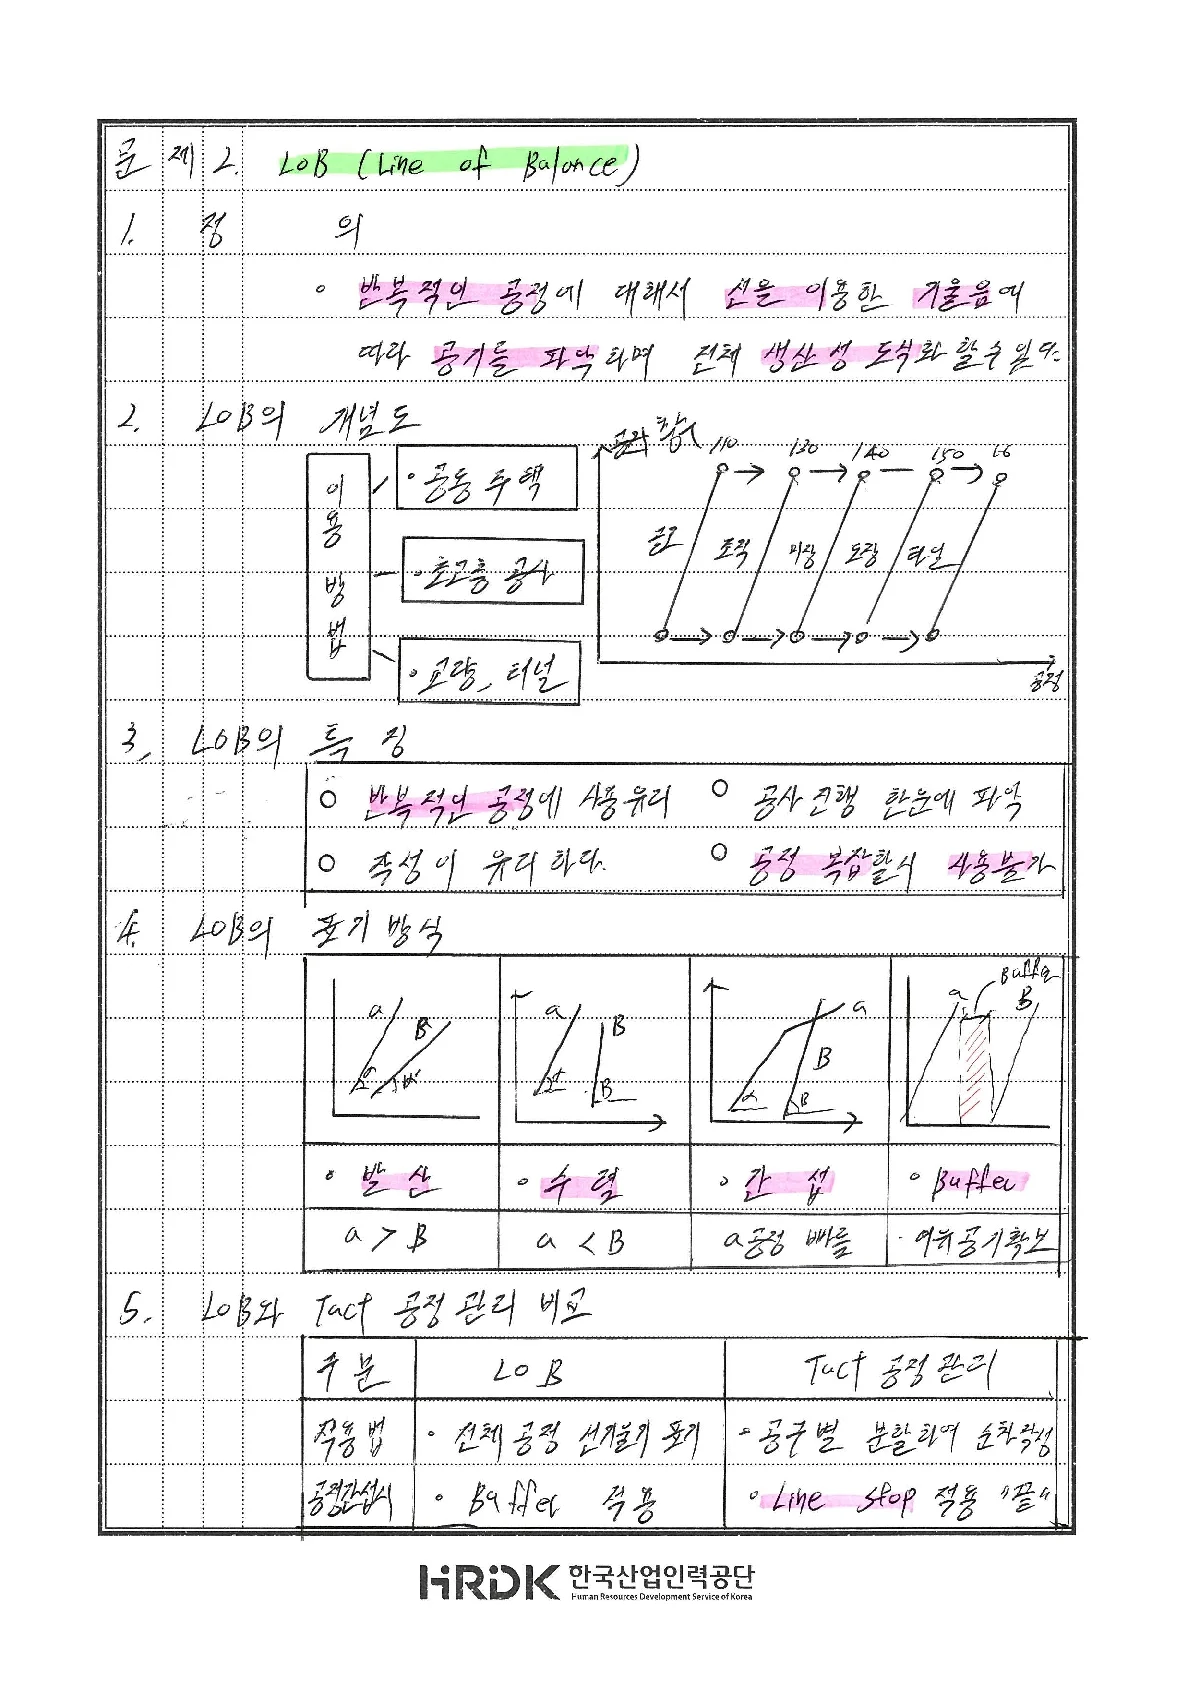 문 제 2. LOB (Line of Balance)
1. 정 의
○ 반복적인 공정에 대해서 선을 이용한 기울음에
따라 공기를 파악하며 전체 생산성 도식화 할수 있다.
2. LOB의 개념도
이용방법
· 공동 주택
· 초고층 공사
· 교량, 터널
110 130 140 150 16
골조 조적 미장 도장 타일
공정
3. LOB의 특징
○ 반복적인 공정에 사용유리 ○ 공사진행 한눈에 파악
○ 작성이 유리하다. ○ 공정 복잡할시 사용불가
4. LOB의 표기방식
a B a B a B a Buffer B
∘ 발산 ∘ 수렴 ∘ 간섭 ∘ Buffer
a > B a < B a공정 빠름 · 여유공기확보
5. LOB와 Tact 공정관리 비교
구분 LOB Tact 공정관리
적용법 · 전체공정 선기울기 표기 · 공구별 분할하여 순차작성
공정간섭시 · Buffer 적용 · Line stop 적용 "끝"
HRDK 한국산업인력공단
Human Resources Development Service of Korea